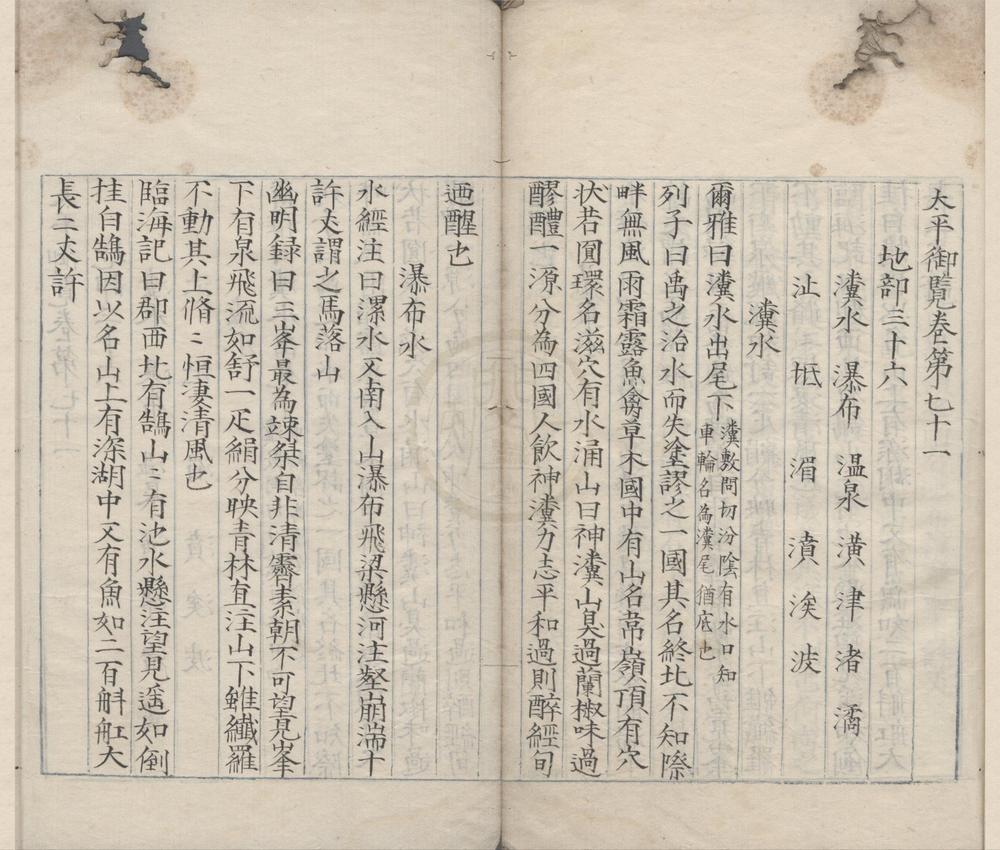 太平御覧卷第七十一
地部三十六
瀵水 瀑布 温泉 潢 津 渚 潏
沚 坻 湄 濆 涘 波
瀵水
爾雅曰瀵水出尾下瀵敷問切汾陰有水口知車輪名為瀵尾猶底也
列子曰禹之治水而失塗謬之一國其名終北不知際
畔無風雨霜露魚禽草木國中有山名帋嶺頂有穴
状若圎環名滋穴有水涌山曰神瀵山臭過蘭椒味過
醪醴一源分為四國人飲神瀵力志平和過則醉經旬
迺醒也
瀑布水
水經注曰漯水又南入山瀑布飛梁懸河注壑崩湍十
許丈謂之馬落山
幽明録曰三峯最為竦桀自非清霽素朝不可望見峯
下有泉飛流如舒一疋絹分映青林直注山下雖纖羅
不動其上脩〻恒凄清風也
臨海記曰郡西北有鵠山〻有池水懸注望見遥如倒
挂白鵠因以名山上有深湖中又有魚如二百斛舡大
長二丈許